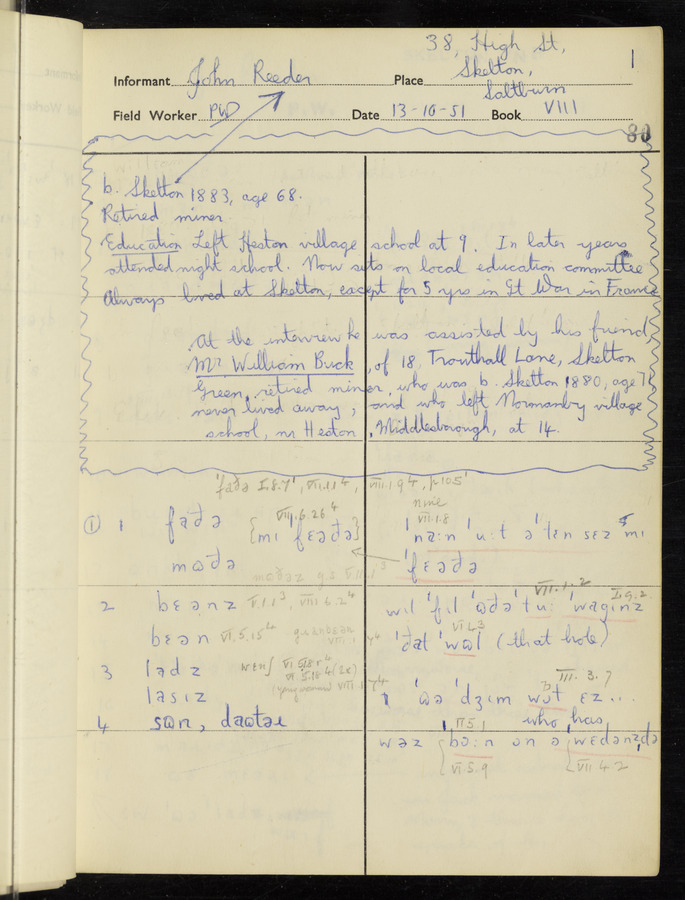 38, High St,
1
Informant John Reeder Place Skelton,
Saltburn
Field Worker PWD Date 13-10-51 Book VIII
80
b. Skelton 1883, age 68.
Retired miner.
Education Left Heston village school at 9. In later years
attended night school. Now sits on local education committee
Always lived at Skelton, except for 5 yrs in Gt War in France
At the interview he was assisted by his friend,
Mr William Buck, of 18, Trouthall Lane, Skelton
Green, retired miner, who was b. Skelton 1880, age 71
never lived away, and who left Normanby village
school, nr Heston, Middlesborough, at 14.
'faðə I.8.7', VII.11⁴, VIII.1 9⁴, p105'
nine
① 1 faðə {mɪ fɛəðə} VIII.6.26⁴
VII.1.8
'na:n 'u:t ə 'tɛn sɛz mɪ
'fɛəðə
mɷðə
VII.1.2
2 bɛənz V.1.1³, VIII.6.2⁴
wɪl 'fɪl 'ɷðə 'tu: 'wagɪnz I.9.2.
bɛən VI.5.15⁴
VI 6.3
'ðat 'wɷl (that hole)
3 ladz wɛnʃ VI 5.18⁴ (2x)
lasɪz
III. 3.7
'ɷə 'dʒɪm wɒt ɛz ...
who has
4 sɷn, daɷtəɹ
II 5.1
wəz {bɔ:n ɒn ə {wɛdənzdə
VI 5.9
VII 4 2